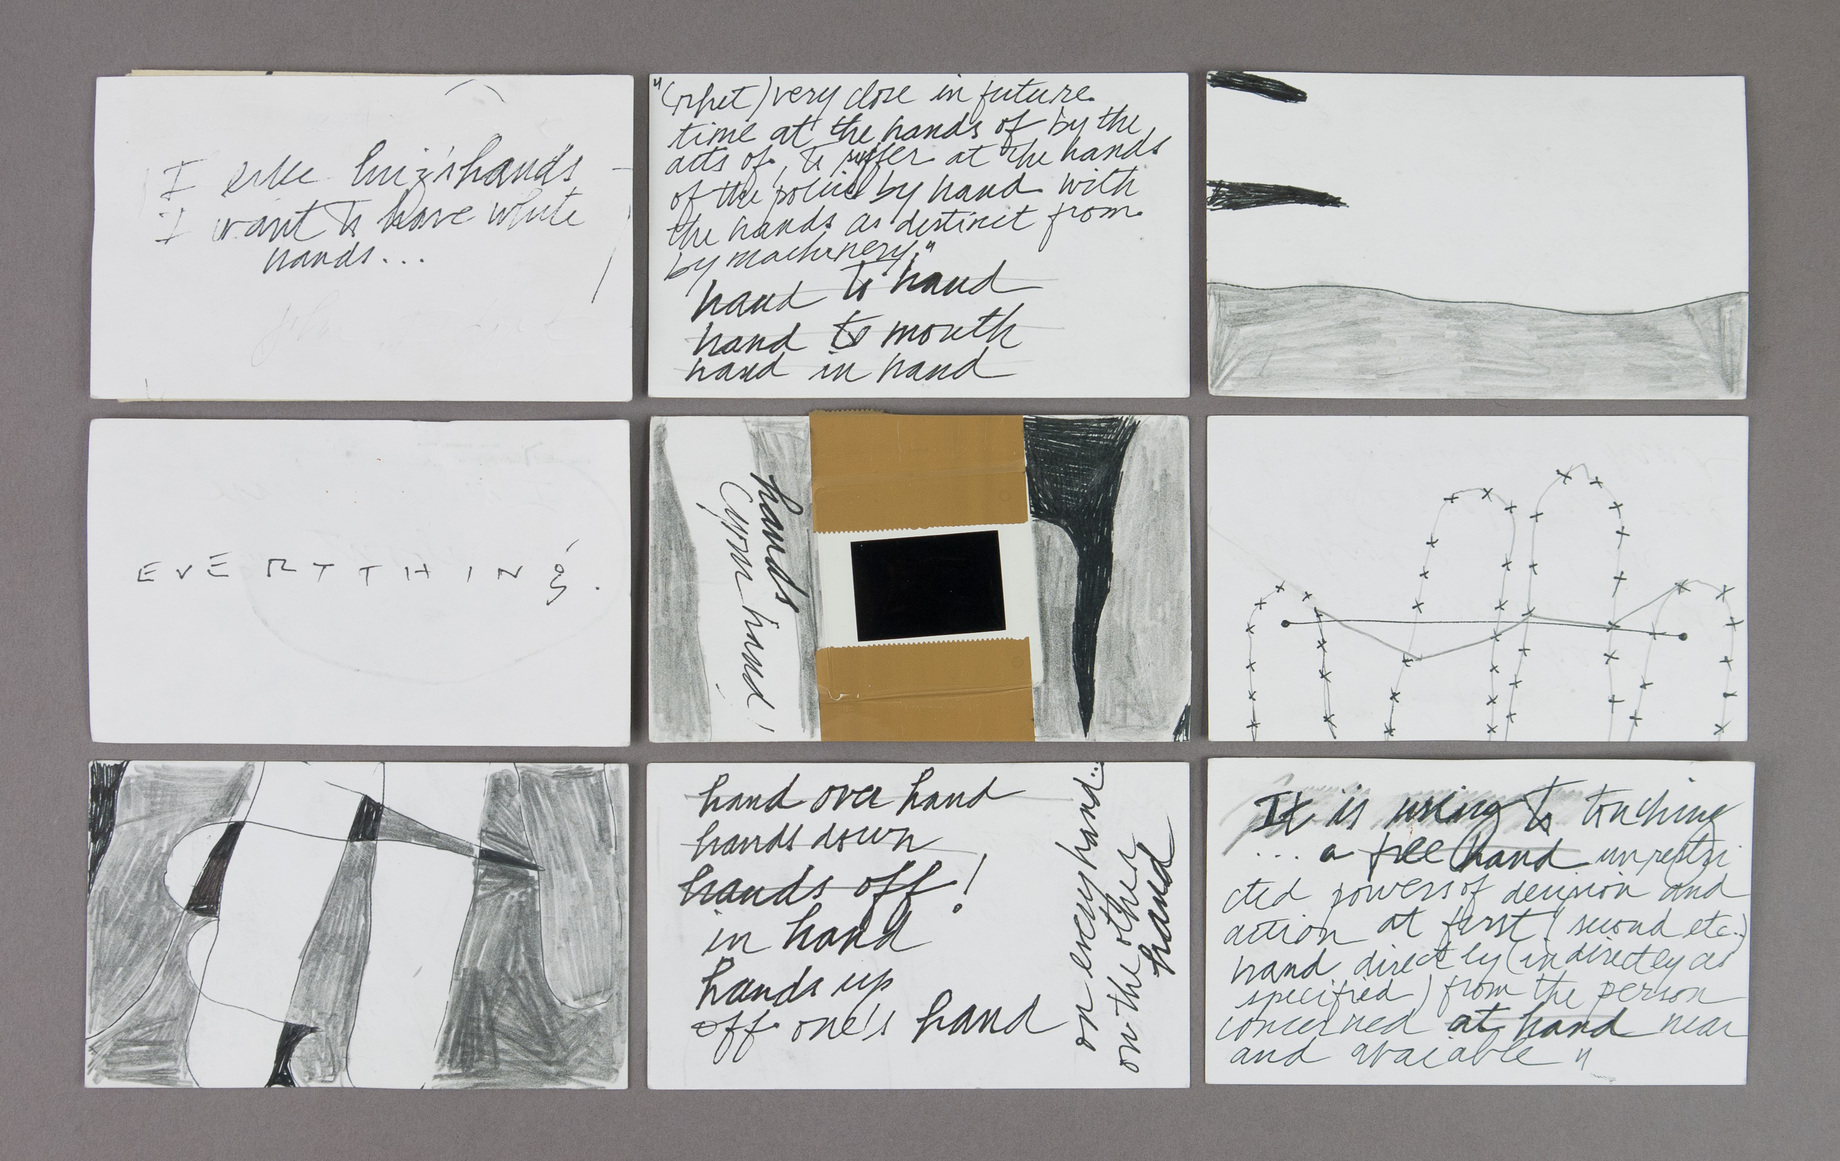 I like luiz's hands
I want to have white
hands...
very close in future.
time at the hands of by the
acts of, to suffer at the hands
of the police by hand with
the hands as distinct from
by machinery."
hand to hand
hand to mouth
hand in hand
EVERYTHING.
hands
hand!
hand over hand
hands down
hands off!
in hand
hands up
off one's hand
on every hand...
on the other
hand
It is using to touching
... a free hand unrestri
cted powers of decision and
action at first (second etc.)
hand directly (indirectly as
specified) from the person
concerned at hand near
and avaiable "